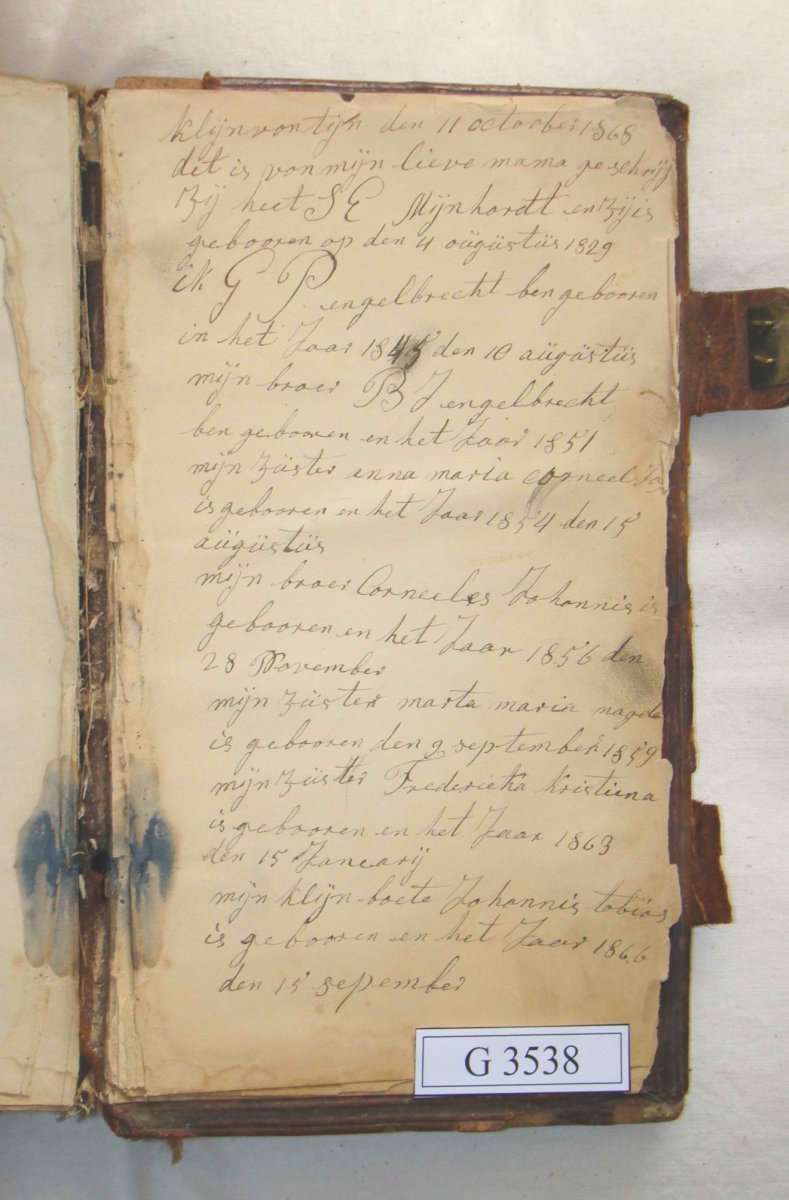 klijnvontijn den 11 october 1868
det is von mijn lieve mama geschrijf
Zij heet S E Mijnhardt en zij is
gebooren op den 4 aügüstüs 1829
ik G P engelbrecht ben gebooren
in het Jaar 1845 den 10 aügüstüs
mijn broer B J engelbrecht
ben gebooren en het Jaar 1851
mijn züster anna maria corneel Ja
is gebooren en het Jaar 1854 den 15
aügüstüs
mijn broer Corneeles Johonnis is
gebooren en het Jaar 1856 den
28 November
mijn züster marta maria magda
is gebooren den 9 september 1859
mijn züster Frederieka kristiena
is gebooren en het Jaar 1863
den 15 Janeary
mijn klijn boete Johonnis tobïas
is gebooren en het Jaar 1866
den 15 sepember
G 3538